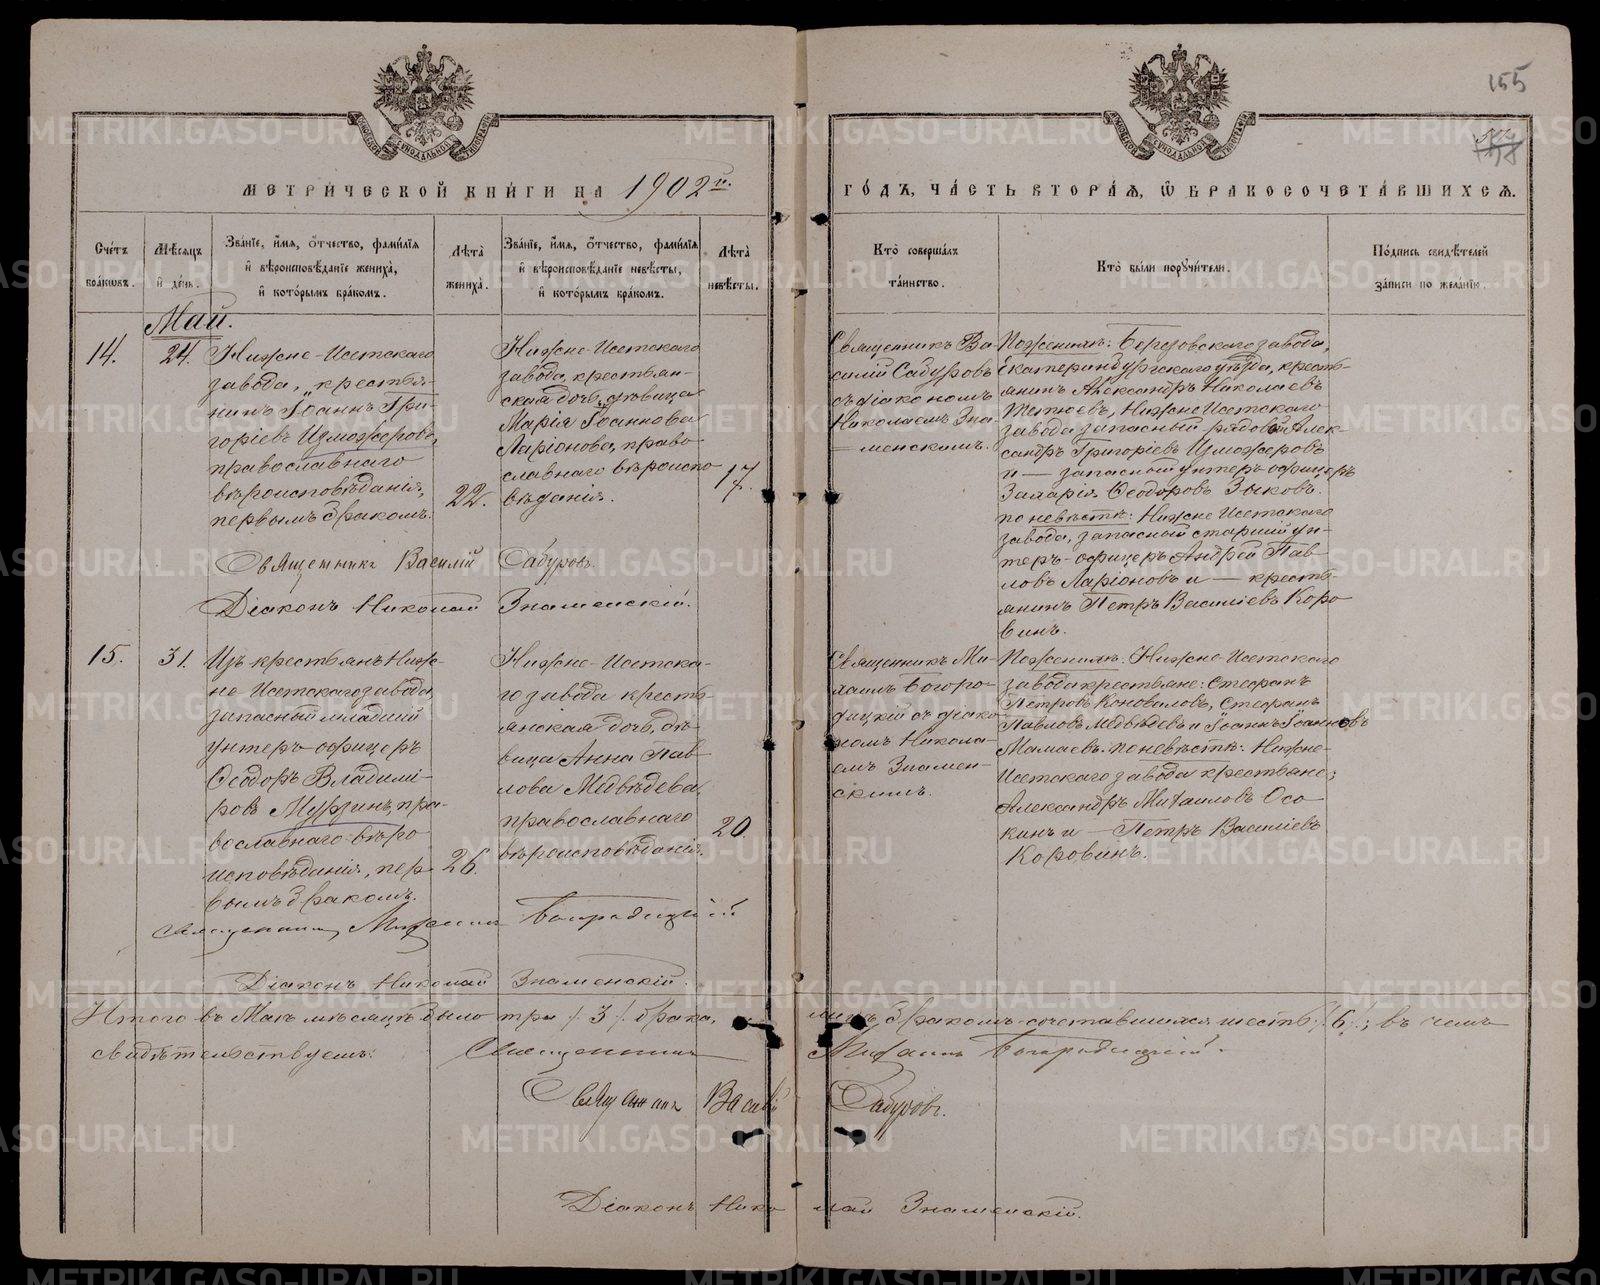 155
МЕТРИ́ЧЕСКОЙ КНИ́ГИ НА 1902 г.
ГО́ДЪ, ЧА́СТЬ ВТОРА́Я, Ѡ БРАКОСОЧЕТА́ВШИХСЯ.
Сче́тъ бра́кѡвъ.
Мѣ́сяцъ и҆ де́нь.
Зва́нїе, и҆́мя, ѻ҆́тчество, фами́лїя
и҆ вѣроисповѣ́данїе жениха̀,
и҆ кото́рымъ бра́комъ.
Лѣ́та жениха̀.
Зва́нїе, и҆́мя, ѻ҆́тчество, фами́лїя
и҆ вѣроисповѣ́данїе невѣ́сты,
и҆ кото́рымъ бра́комъ.
Лѣ́та невѣ́сты.
Кто̀ соверша́лъ
та́инство.
Кто̀ бы́ли порꙋчи́тели.
По́дпись свидѣ́телей
за́писи по жела́нїю.
Май.
14.
24.
Нижне-Исетскаго
завода, крестья-
нинъ Іоаннъ Гри-
горіевъ Изможеровъ,
православнаго
вѣроисповѣданія,
первымъ бракомъ.
22.
Нижне-Исетскаго
завода, крестьян-
ская дочь, дѣвица
Марія Іоаннова
Ларіонова, право-
славнаго вѣроиспо-
вѣданія.
17.
Священникъ Ва-
силій Сабуровъ
съ діакономъ
Николаемъ Зна-
менскимъ.
По женихѣ: Березовскаго завода,
Екатеринбургскаго уѣзда, кресть-
янинъ Александръ Николаевъ
Тетюевъ, Нижне Исетскаго
завода запасный рядовой Алек-
сандръ Григоріевъ Изможеровъ
и — запасный унтеръ-офицеръ
Захарія Ѳеодоровъ Зыковъ.
по невѣстѣ: Нижне Исетскаго
завода, запасный старшій ун-
теръ-офицеръ Андрей Пав-
ловъ Ларіоновъ и — кресть-
янинъ Петръ Василіевъ Коро-
винъ.
Священникъ Василій Сабуровъ.
Діаконъ Николай Знаменскій.
15.
31.
Изъ крестьянъ Ниж-
не-Исетскаго завода,
запасный младшій
унтеръ-офицеръ
Ѳеодоръ Владимі-
ровъ Мурзинъ, пра-
вославнаго вѣро-
исповѣданія, пер-
вымъ бракомъ.
26.
Нижне-Исетска-
го завода кресть-
янская дочь, дѣ-
вица Анна Пав-
лова Медвѣдева,
православнаго
вѣроисповѣданія.
20.
Священникъ Ми-
хаилъ Богоро-
дицкій съ діако-
номъ Никола-
емъ Знамен-
скимъ.
По женихѣ: Нижне-Исетскаго
завода крестьяне: Стефанъ
Петровъ Коновиловъ, Стефанъ
Павловъ Медвѣдевъ и Іоаннъ Іоанновъ
Мамаевъ. по невѣстѣ: Нижне-
Исетскаго завода крестьяне;
Александръ Михаиловъ Осо-
кинъ и — Петръ Василіевъ
Коровинъ.
Священникъ Михаилъ Богородицкій
Діаконъ Николай Знаменскій.
Итого въ Маѣ мѣсяцѣ было три /3/ брака, бракомъ сочетавшихся шесть /6/; въ чемъ
свидѣтельствуемъ: Священникъ Михаилъ Богородицкій.
Священникъ Василій Сабуровъ.
Діаконъ Николай Знаменскій.
METRIKI.GASO-URAL.RU